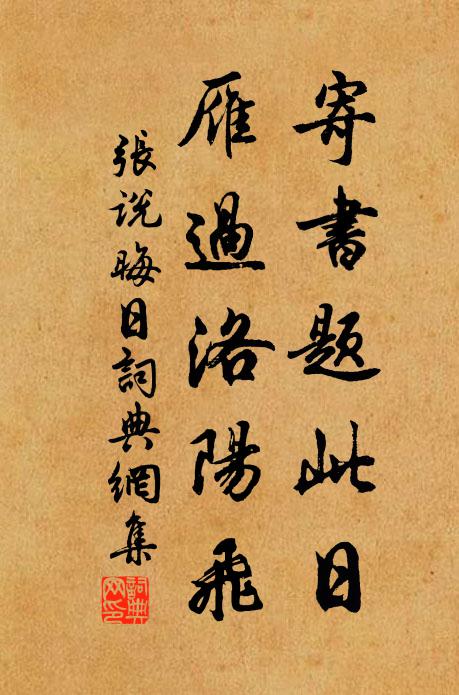 寄書題此日
雁過洛陽飛
張説晦日詞典網集
詞典
网印